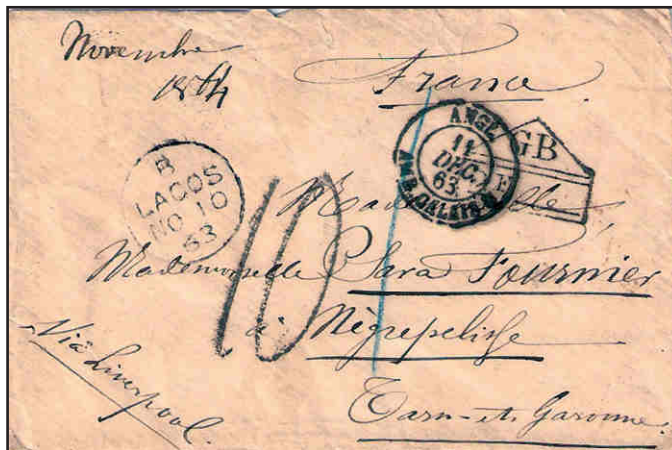 Novembre
1864
France
B
LAGOS
NO 10
63
ANGL.
11
DEC.
63
AMB. CALAIS
GB
10
Mademoiselle Clara Fournier
à Nègrepelisse
Tarn-et-Garonne.
Via Liverpool.